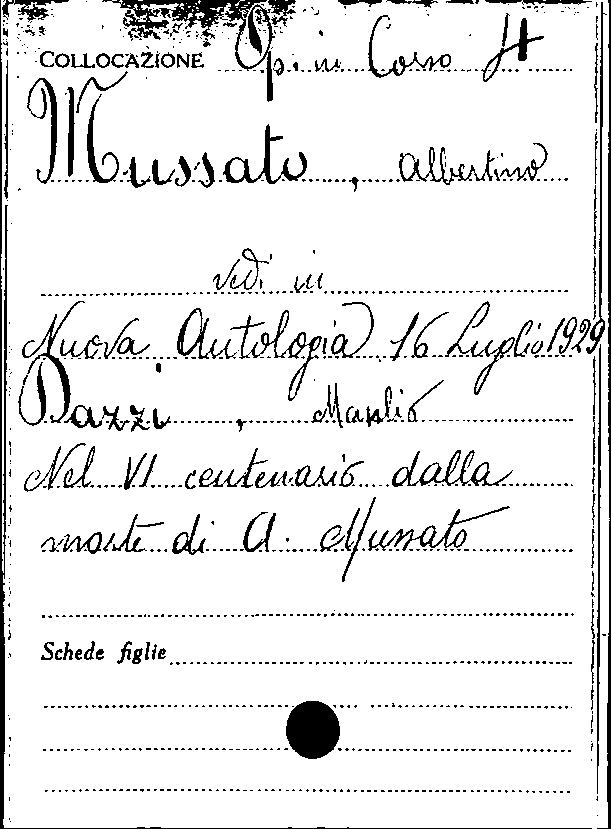 COLLOCAZIONE Op. in Corso H
Mussato, Albertino
vedi in
Nuova Antologia 16 Luglio 1929
Dazzi, Manlio
Nel VI centenario dalla
morte di A. Mussato
Schede figlie